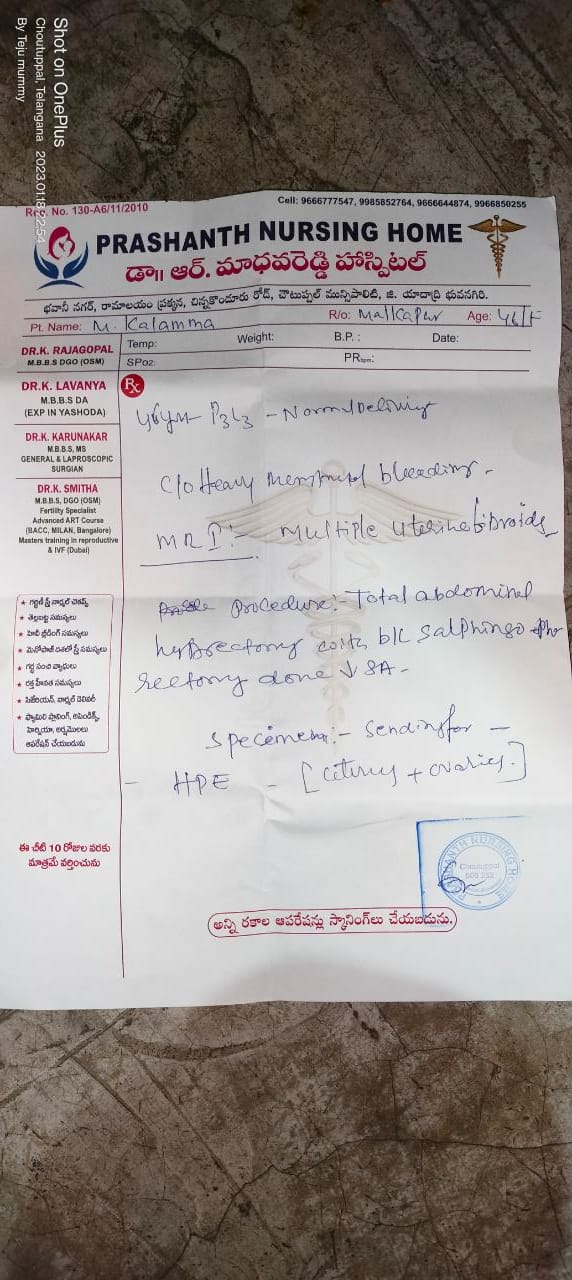 Shot on OnePlus
Choutuppal, Telangana 2023.01.18 22:54
By Teju mummy
Reg. No. 130-A6/11/2010
Cell: 9666777547, 9985852764, 9666644874, 9966850255
PRASHANTH NURSING HOME
డా॥ ఆర్. మాధవరెడ్డి హాస్పిటల్
భవానీ నగర్, రామాలయం ప్రక్కన, చిన్నకొండూరు రోడ్, చౌటుప్పల్ మున్సిపాలిటీ, జి. యాదాద్రి భువనగిరి.
Pt. Name: M. Kalamma R/o: Malkapur Age: 46/F
Temp: Weight: B.P.: Date:
SPo2: PRbpm:
DR.K. RAJAGOPAL
M.B.B.S DGO (OSM)
DR.K. LAVANYA
M.B.B.S DA
(EXP IN YASHODA)
DR.K. KARUNAKAR
M.B.B.S, MS
GENERAL & LAPROSCOPIC
SURGIAN
DR.K. SMITHA
M.B.B.S, DGO (OSM)
Fertility Specialist
Advanced ART Course
(BACC, MILAN, Bangalore)
Masters training in reproductive
& IVF (Dubai)
★ గర్భిణీ స్త్రీ నార్మల్ చెకప్స్
★ తెల్లబట్ట సమస్యలు
★ హెవీ బ్లీడింగ్ సమస్యలు
★ మెనోపాజ్ దశలో స్త్రీ సమస్యలు
★ గడ్డ సంచి వ్యాధులు
★ రక్త హీనత సమస్యలు
★ సిజేరియన్, నార్మల్ డెలివరీ
★ ఫ్యామిలి ప్లానింగ్, అపెండిక్స్,
హెర్నియా, అర్శమొలలు
ఆపరేషన్ చేయబడును
ఈ చీటి 10 రోజుల వరకు
మాత్రమే వర్తించును
Rx
P3L3 - Normal Delivery
C/o Heavy menstrual bleeding -
MRI :- Multiple uterine fibroids
Procedure :- Total abdominal
hysrectomy with b/L Salphingo opho
rectomy done ↓ SA -
Specimen :- Sending for -
- HPE - [uterus + ovaries.]
PRASHANTH NURSING HOME
Choutuppal
508 252
అన్ని రకాల ఆపరేషన్లు స్కానింగ్‌లు చేయబడును.